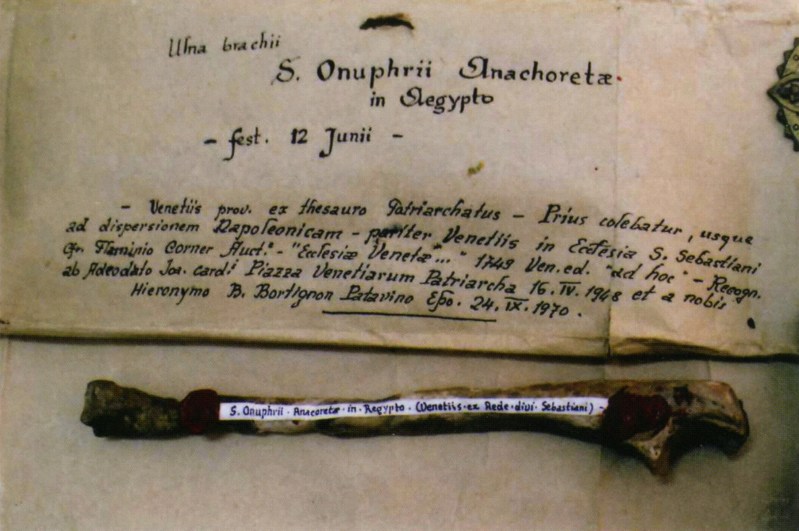 Ulna brachii
S. Onuphrii Anachoretæ.
in Aegypto
- fest. 12 Junii -
- Venetiis prov. ex thesauro Patriarchatus - Prius colebatur, usque
ad dispersionem Napoleonicam - pariter Venetiis in Ecclesia S. Sebastiani
Cfr. Flaminio Corner Auct.: - "Ecclesiæ Venetæ..." 1749 Ven. ed. "ad hoc" - Recogn.
ab Adeodato Joa. Card. Piazza Venetiarum Patriarcha 16. IV. 1948 et a nobis
Hieronymo B. Bortignon Patavino Epo. 24. IX. 1970.
S. Onuphrii · Anacoretæ · in · Aegypto · (Venetiis · ex Aede · divi · Sebastiani) -